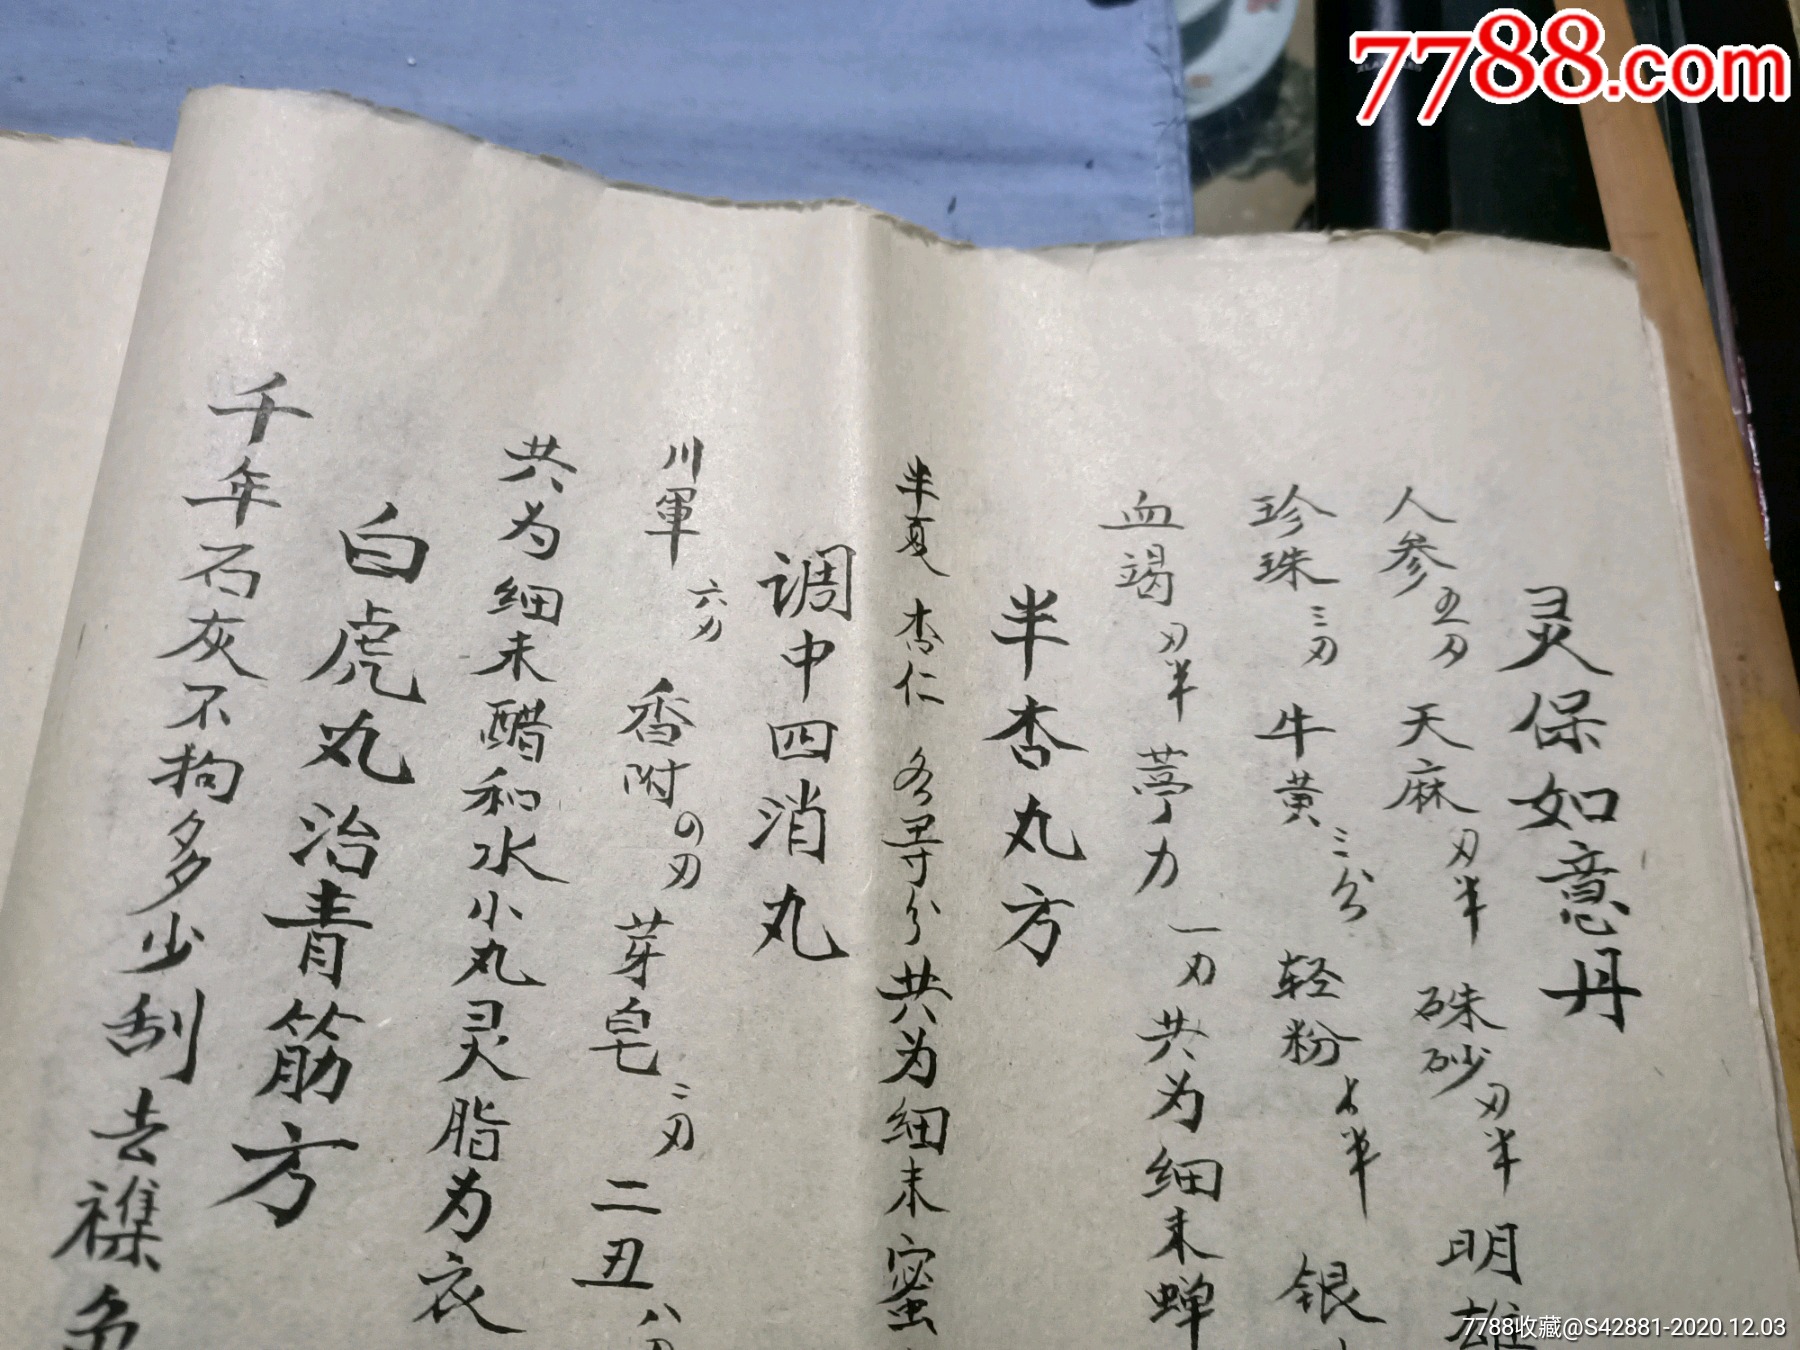 7788.com
灵保如意丹
人参五刃 天麻刃半 硃砂刃半 明雄
珍珠三刃 牛黄三分 轻粉半 银
血竭刃半 葶力一刃共为细末蝉
半杏丸方
半夏 杏仁 各等分共为细末蜜
调中四消丸
川軍六刃 香附四刃 芽皂二刃 二丑八
共为细末醋和水小丸灵脂为衣
白虎丸治青筋方
千年石灰不拘多少刮去襍色
7788收藏@S42881-2020.12.03